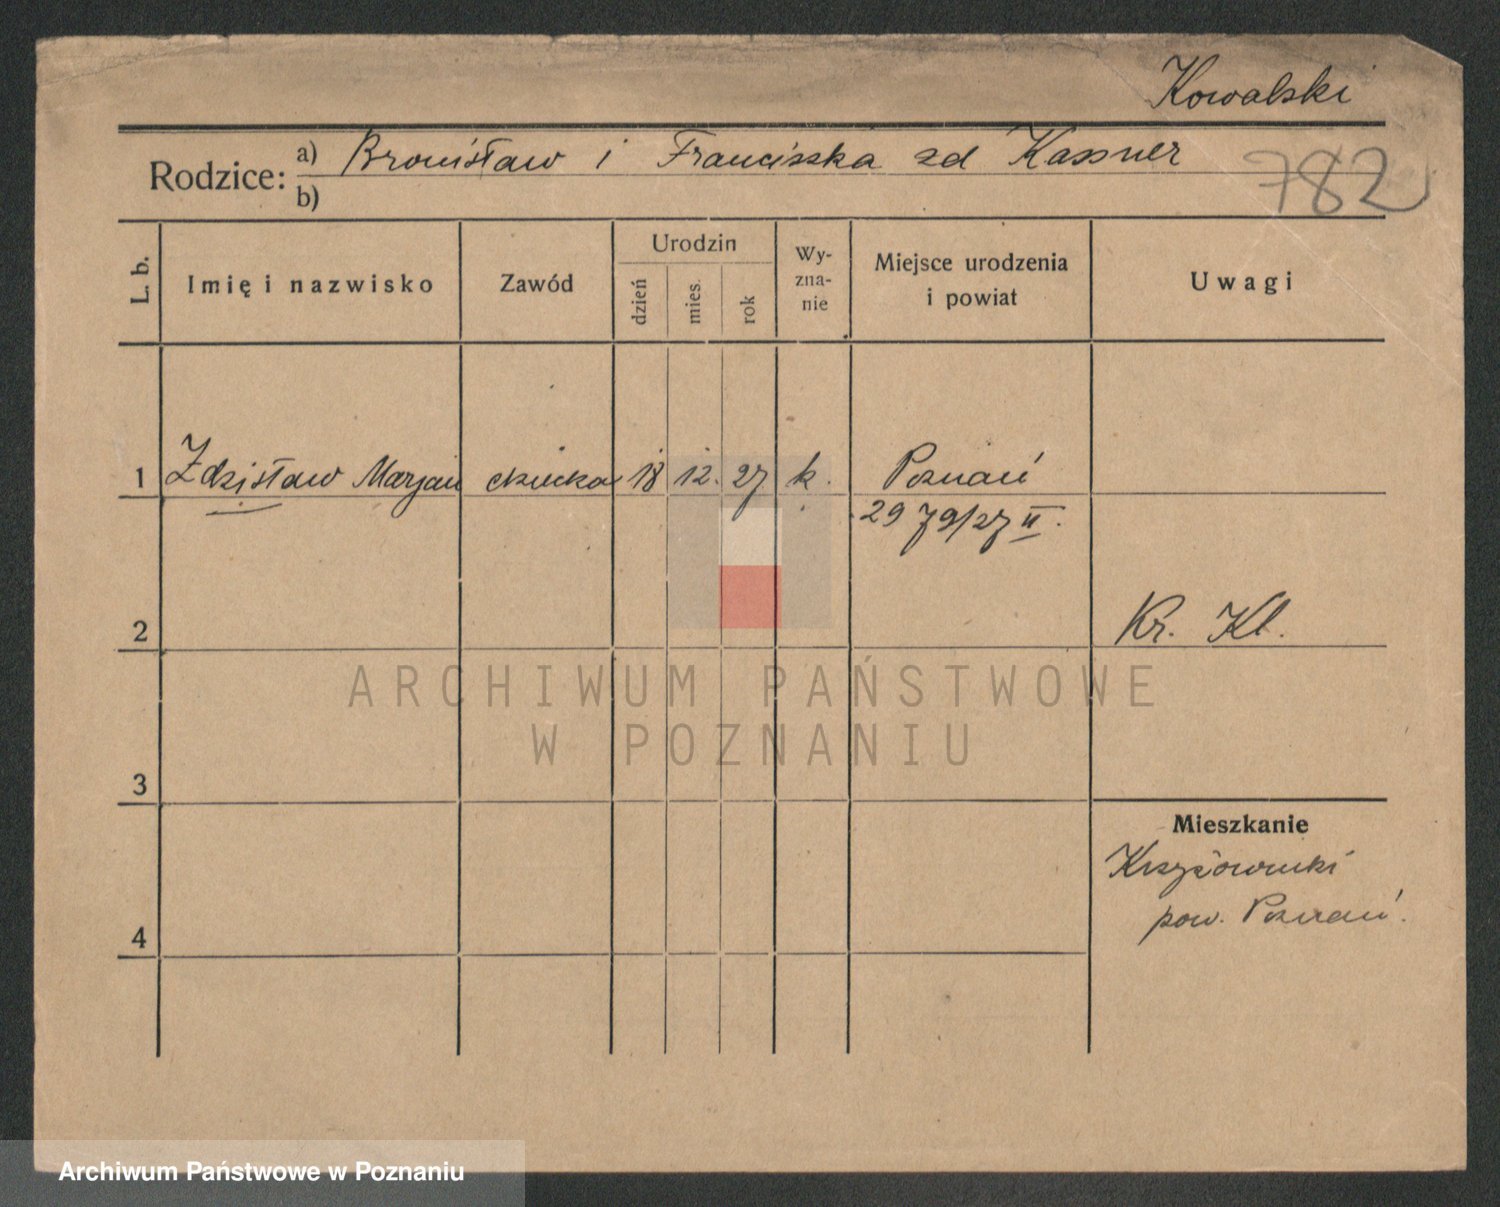 Kowalski
Rodzice: a) Bronisław i Franciszka zd Kassner
b)
782
L. b.
Imię i nazwisko
Zawód
Urodzin
dzień
mies.
rok
Wy-
zna-
nie
Miejsce urodzenia
i powiat
Uwagi
1 Zdzisław Marjan 18 12. 27 k. Poznań
2979/27 II.
2 Kr. Kl.
3
Mieszkanie
Krzyżowniki
pow. Poznań.
4
ARCHIWUM PAŃSTWOWE
W POZNANIU
Archiwum Państwowe w Poznaniu